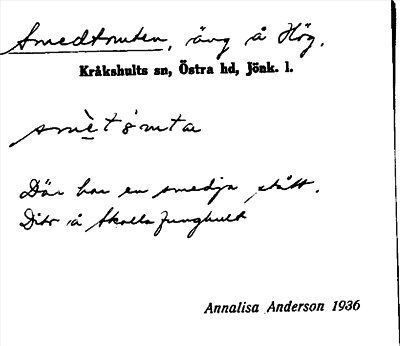 Smedtomten, äng å Hög.
Kråkshults sn, Östra hd, Jönk. l.
smètómta
Där har en smedja stått.
Dito å Skalla Ljunghult
Annalisa Anderson 1936